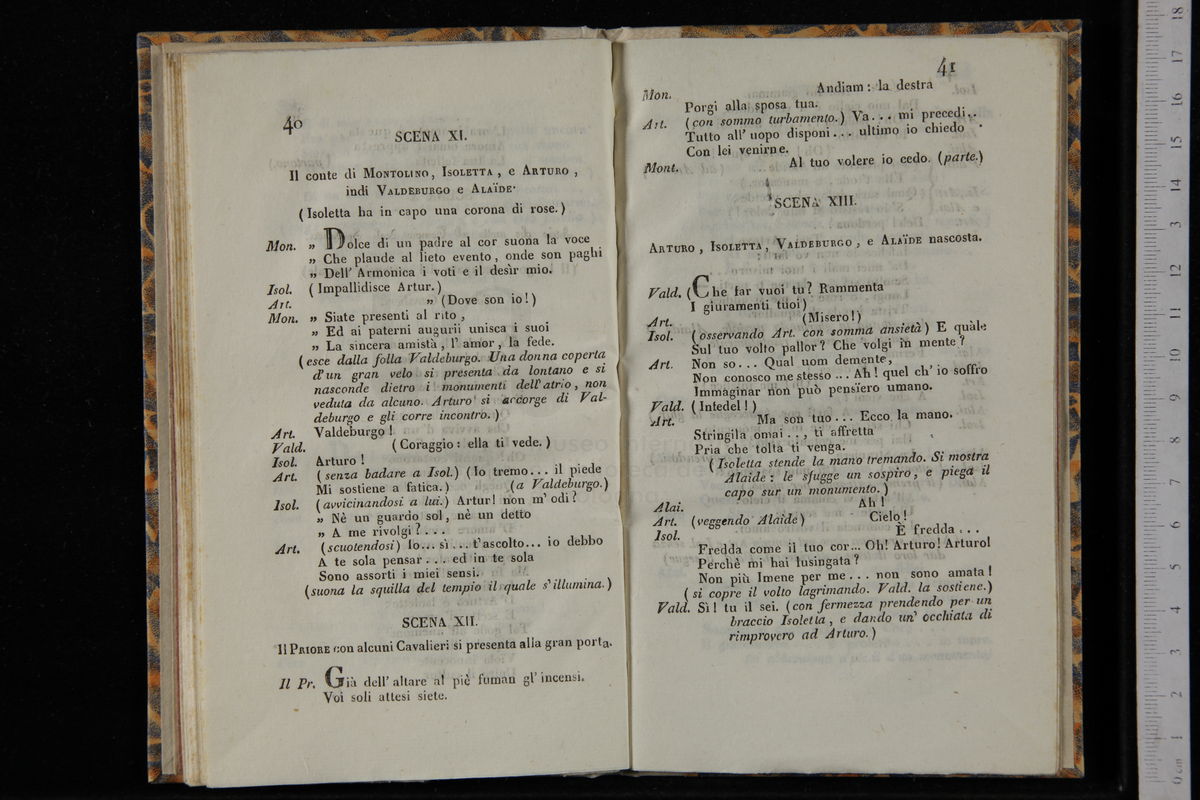 40
SCENA XI.
Il conte di MONTOLINO, ISOLETTA, e ARTURO,
indi VALDEBURGO e ALAÏDE.
(Isoletta ha in capo una corona di rose.)
Mon. „ Dolce di un padre al cor suona la voce
„ Che plaude al lieto evento, onde son paghi
„ Dell' Armonica i voti e il desìr mio.
Isol. (Impallidisce Artur.)
Art. „ (Dove son io!)
Mon. „ Siate presenti al rito,
„ Ed ai paterni augurii unisca i suoi
„ La sincera amistà, l' amor, la fede.
(esce dalla folla Valdeburgo. Una donna coperta
d'un gran velo si presenta da lontano e si
nasconde dietro i monumenti dell'atrio, non
veduta da alcuno. Arturo si accorge di Val-
deburgo e gli corre incontro.)
Art. Valdeburgo!
Vald. (Coraggio: ella ti vede.)
Isol. Arturo!
Art. (senza badare a Isol.) (Io tremo... il piede
Mi sostiene a fatica.) (a Valdeburgo.)
Isol. (avvicinandosi a lui.) Artur! non m' odi?
„ Nè un guardo sol, nè un detto
„ A me rivolgi?...
Art. (scuotendosi) Io... sì... t'ascolto... io debbo
A te sola pensar... ed in te sola
Sono assorti i miei sensi.
(suona la squilla del tempio il quale s'illumina.)
SCENA XII.
Il PRIORE con alcuni Cavalieri si presenta alla gran porta.
Il Pr. Già dell' altare al piè fuman gl' incensi.
Voi soli attesi siete.
41
Mon. Andiam: la destra
Porgi alla sposa tua.
Art. (con sommo turbamento.) Va... mi precedi..
Tutto all' uopo disponi... ultimo io chiedo
Con lei venirne.
Mont. Al tuo volere io cedo. (parte.)
SCENA XIII.
ARTURO, ISOLETTA, VALDEBURGO, e ALAÏDE nascosta.
Vald. (Che far vuoi tu? Rammenta
I giuramenti tuoi)
Art. (Misero!)
Isol. (osservando Art. con somma ansietà) E quale
Sul tuo volto pallor? Che volgi in mente?
Art. Non so... Qual uom demente,
Non conosco me stesso... Ah! quel ch' io soffro
Immaginar non può pensïero umano.
Vald. (Intedel!)
Art. Ma son tuo... Ecco la mano.
Stringila omai.., ti affretta
Pria che tolta ti venga.
(Isoletta stende la mano tremando. Si mostra
Alaide: le sfugge un sospiro, e piega il
capo sur un monumento.)
Alai. Ah!
Art. (veggendo Alaide) Cielo!
Isol. È fredda...
Fredda come il tuo cor... Oh! Arturo! Arturol
Perchè mi hai lusingata?
Non più Imene per me... non sono amata!
(si copre il volto lagrimando. Vald. la sostiene.)
Vald. Sì! tu il sei. (con fermezza prendendo per un
braccio Isoletta, e dando un' occhiata di
rimprovero ad Arturo.)